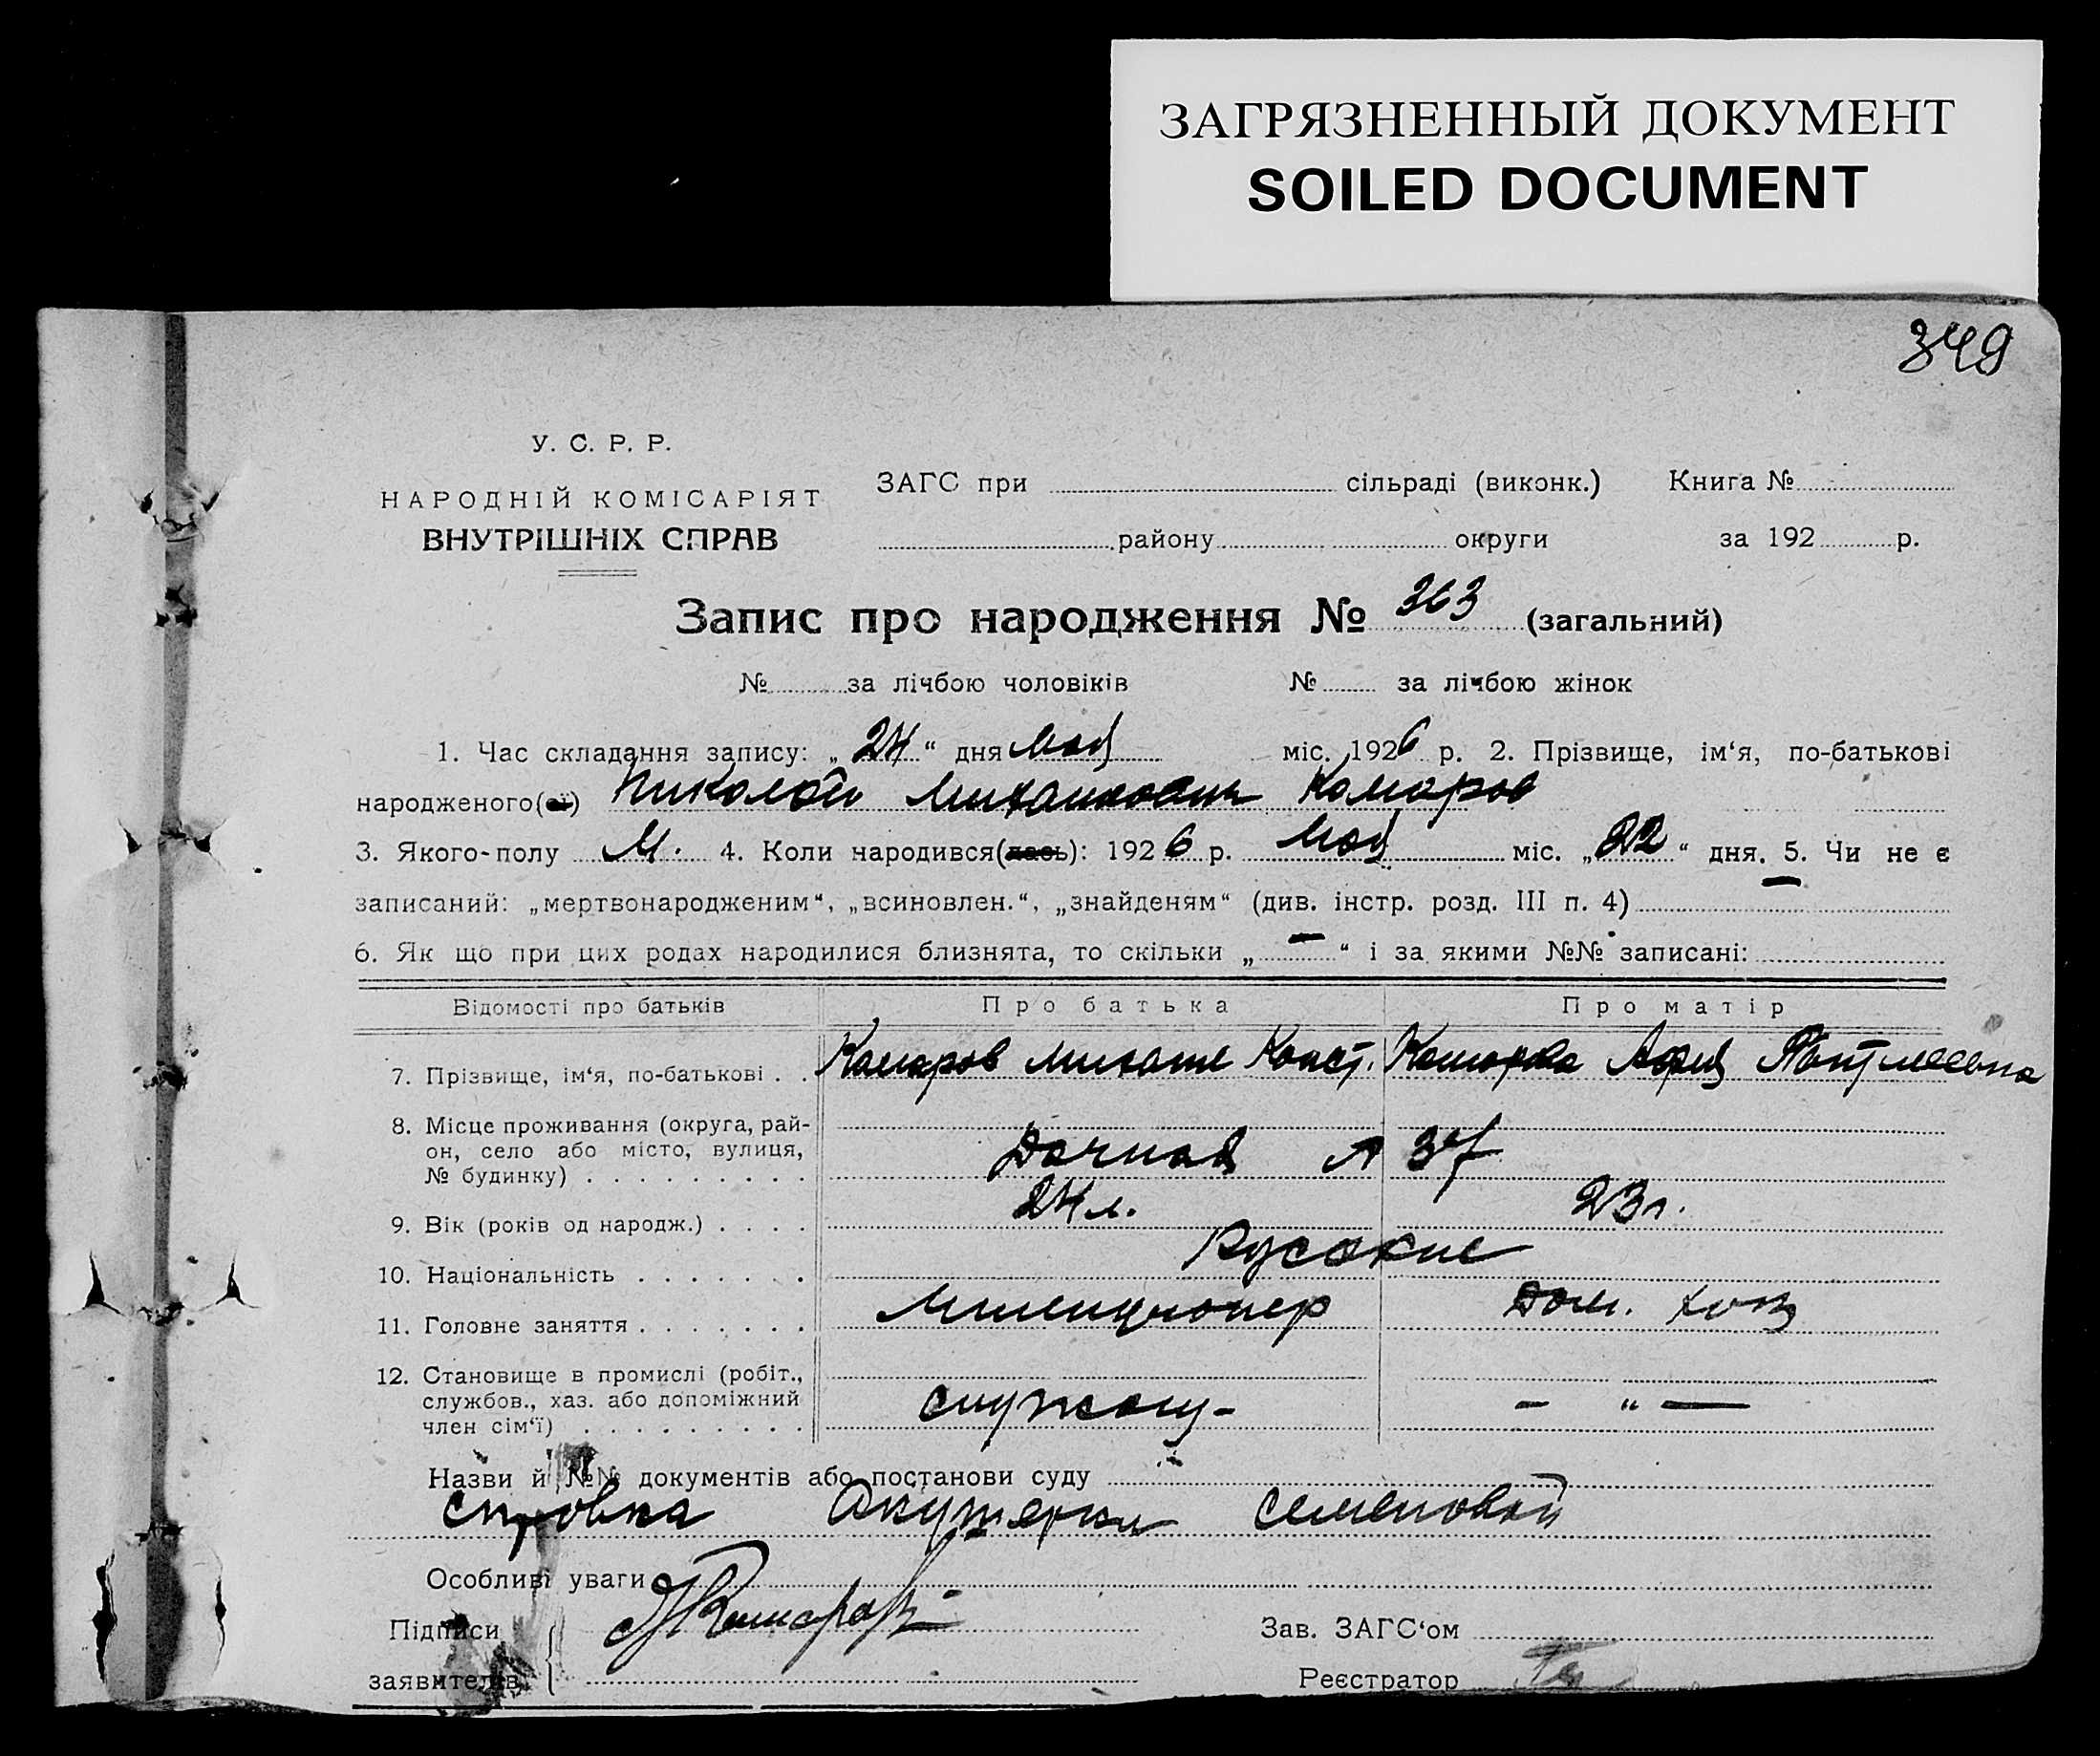 ЗАГРЯЗНЕННЫЙ ДОКУМЕНТ
SOILED DOCUMENT
349
У. С. Р. Р.
НАРОДНІЙ КОМІСАРІЯТ
ВНУТРІШНІХ СПРАВ
ЗАГС при сільраді (виконк.) Книга №
району округи за 192 р.
Запис про народження № 363 (загальний)
№ за лічбою чоловіків № за лічбою жінок
1. Час складання запису: „24“ дня Мая міс. 1926 р. 2. Прізвище, ім‘я, по-батькові
народженого(ої) Николай Михайлович Комаров
3. Якого-полу М. 4. Коли народився(лась): 1926 р. Мая міс. „22“ дня. 5. Чи не є
записаний: „мертвонародженим“, „всиновлен.“, „знайденям“ (див. інстр. розд. III п. 4) —
6. Як що при цих родах народилися близнята, то скільки „—“ і за якими №№ записані:
Відомості про батьків Про батька Про матір
7. Прізвище, ім‘я, по-батькові . . Комаров Михаил Конст. Комарова
8. Місце проживання (округа, рай-
он, село або місто, вулиця,
№ будинку) . . . . . . . . . Дачная 37
9. Вік (років од народж.) . . . . 24 л. 23 л.
10. Національність . . . . . . . Русские
11. Головне заняття . . . . . . . Милиционер Дом. хоз
12. Становище в промислі (робіт.,
службов., хаз. або допоміжний
член сім‘ї) . . . . . . . . . служащ- — „ —
Назви й №№ документів або постанови суду
справка Акушерки Семеновой
Особливі уваги
Підписи МКомаров Зав. ЗАГС‘ом
заявителів Реєстратор